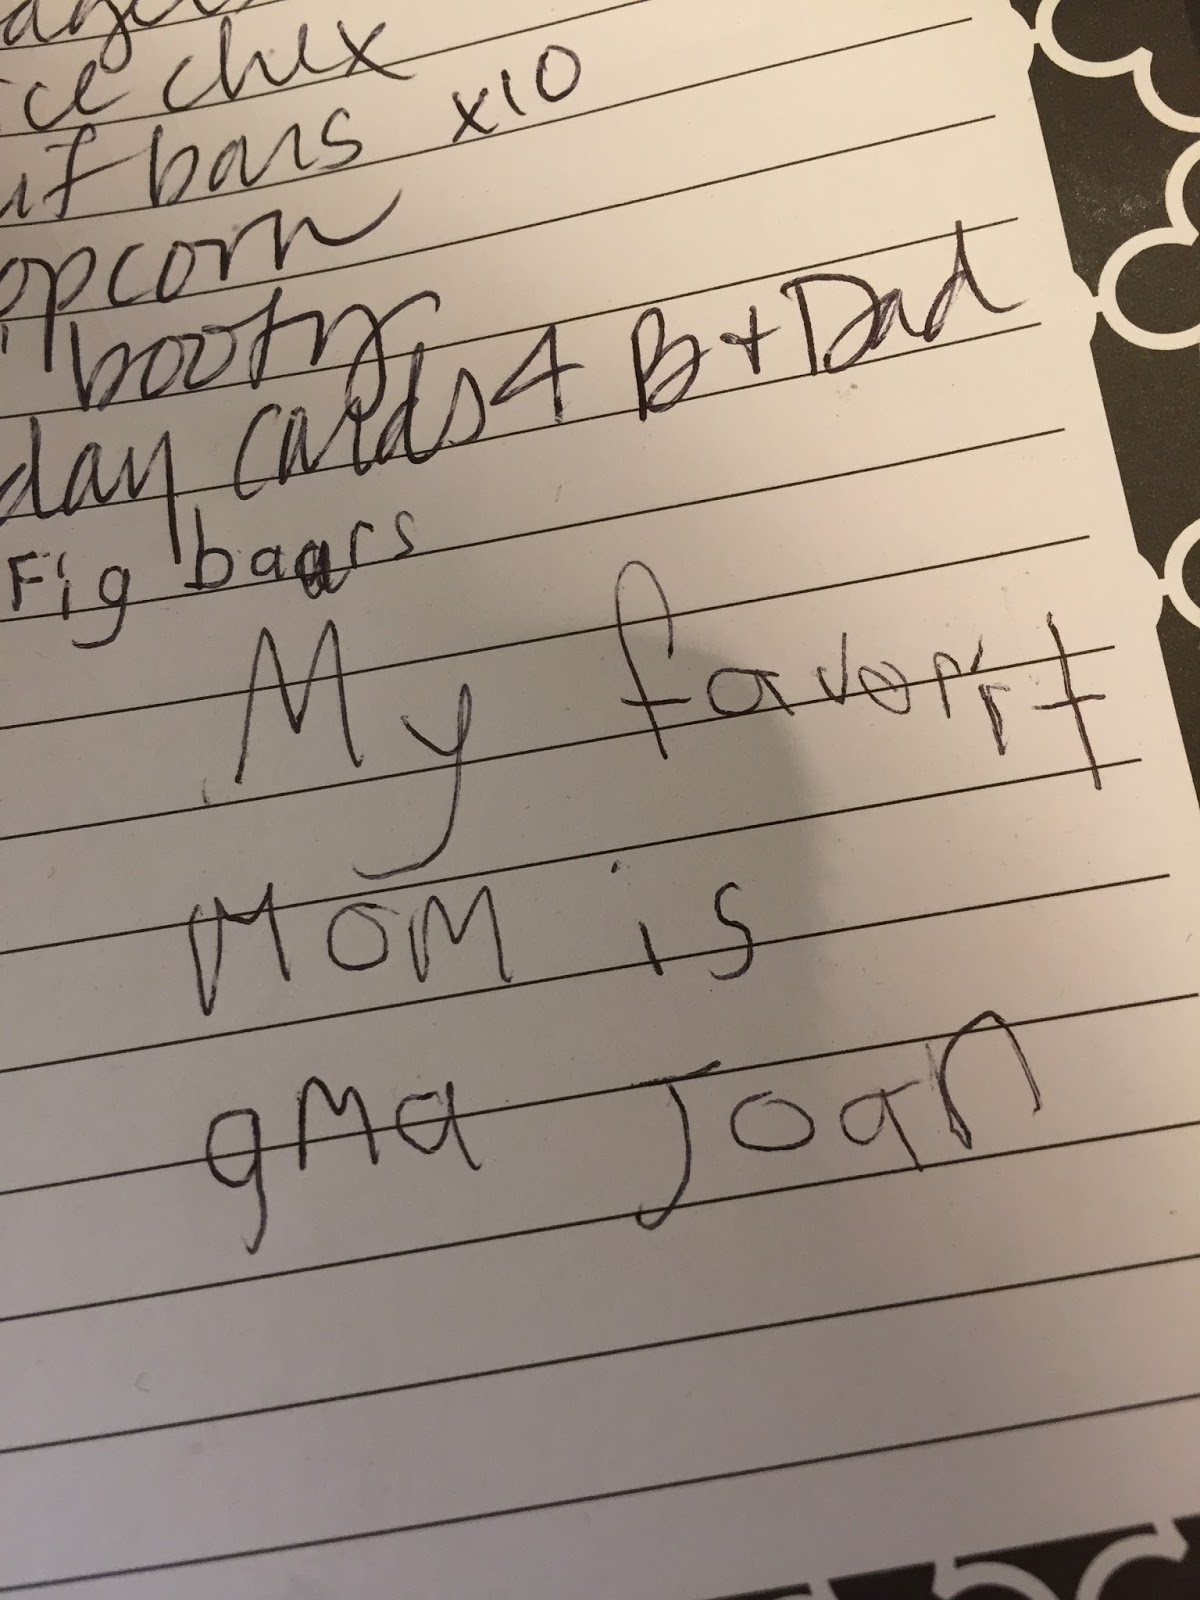 chex
bars x10
booty
day cards 4 B + Dad
Fig baars
My favorit
MOM is
gma Joan